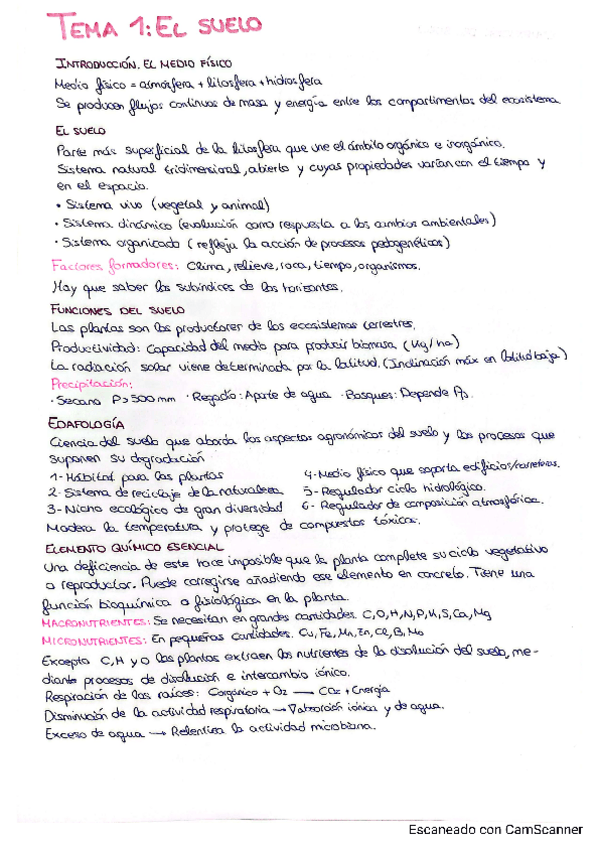 TEMA 1: EL SUELO
INTRODUCCIÓN. EL MEDIO FÍSICO
Medio físico = atmósfera + litosfera + hidrosfera
Se producen flujos continuos de masa y energía entre los compartimentos del ecosistema.
EL SUELO
Parte más superficial de la litosfera que une el ámbito orgánico e inorgánico.
Sistema natural tridimensional, abierto y cuyas propiedades varían con el tiempo y
en el espacio.
• Sistema vivo (vegetal y animal)
• Sistema dinámico (evolución como respuesta a los cambios ambientales)
• Sistema organizado (refleja la acción de procesos pedogenéticos)
Factores formadores: Clima, relieve, roca, tiempo, organismos.
Hay que saber los subíndices de los horizontes.
FUNCIONES DEL SUELO
Las plantas son los productores de los ecosistemas terrestres.
Productividad: Capacidad del medio para producir biomasa (Kg/ha)
La radiación solar viene determinada por la latitud. (Inclinación máx en latitud baja)
Precipitación:
· Secano P>500mm · Regadío: Aporte de agua · Bosques: Depende
EDAFOLOGÍA
Ciencia del suelo que aborda los aspectos agronómicos del suelo y los procesos que
suponen su degradación
1- Hábitat para las plantas 4- Medio físico que soporta edificios/carreteras.
2- Sistema de reciclaje de la naturaleza 5- Regulador ciclo hidrológico.
3- Nicho ecológico de gran diversidad 6- Regulador de composición atmosférica.
Modera la temperatura y protege de compuestos tóxicos.
ELEMENTO QUÍMICO ESENCIAL
Una deficiencia de este hace imposible que la planta complete su ciclo vegetativo
o reproductor. Puede corregirse añadiendo ese elemento en concreto. Tiene una
función bioquímica o fisiológica en la planta.
MACRONUTRIENTES: Se necesitan en grandes cantidades. C,O,H,N,P,K,S,Ca,Mg
MICRONUTRIENTES: En pequeñas cantidades. Cu, Fe, Mn, Zn, Cl, B, Mo
Excepto C,H y O las plantas extraen los nutrientes de la disolución del suelo, me-
diante procesos de disolución e intercambio iónico.
Respiración de las raíces: Corgánico + O2 → CO2 + Energía
Disminución de la actividad respiratoria → ∇absorción iónica y de agua.
Exceso de agua → Ralentiza la actividad microbiana.
Escaneado con CamScanner